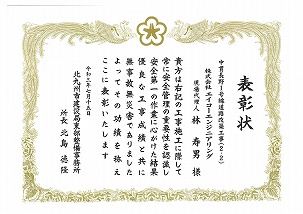 表彰状
中貫長野1号線道路改築工事(2-2)
株式会社エイコーエンジニアリング
現場代理人 林 寿男 様
貴方は右記の工事施工に際して
常に安全管理の重要性を認識し
安全第一の作業に心がけた結果
優良な工事成績と共に
無事故無災害でありました
よってその功績を称え
ここに表彰いたします
令和三年七月十五日
北九州市建設局東部整備事務所
所長 北島 徳隆